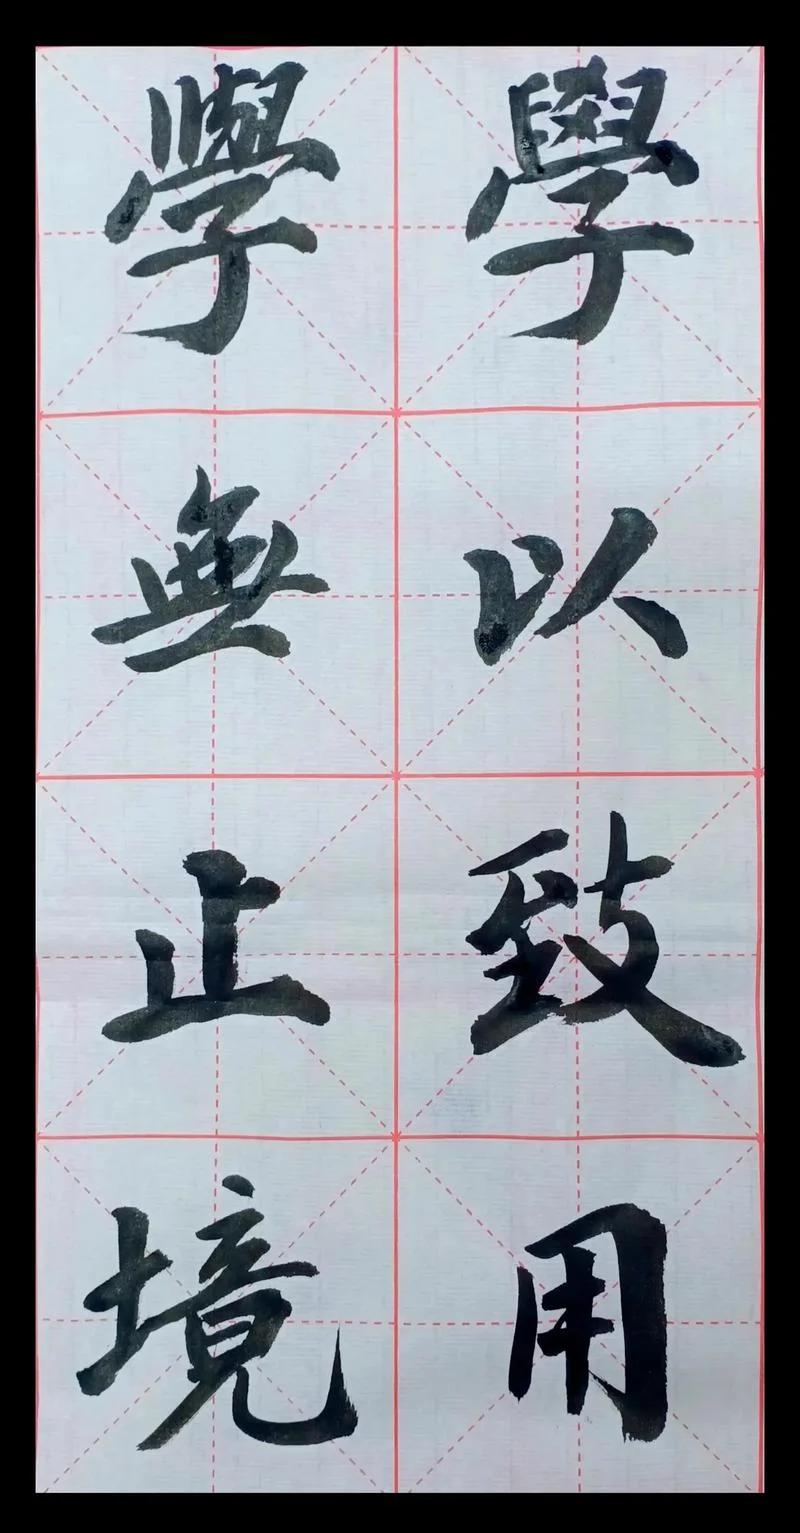 學以致用
學無止境